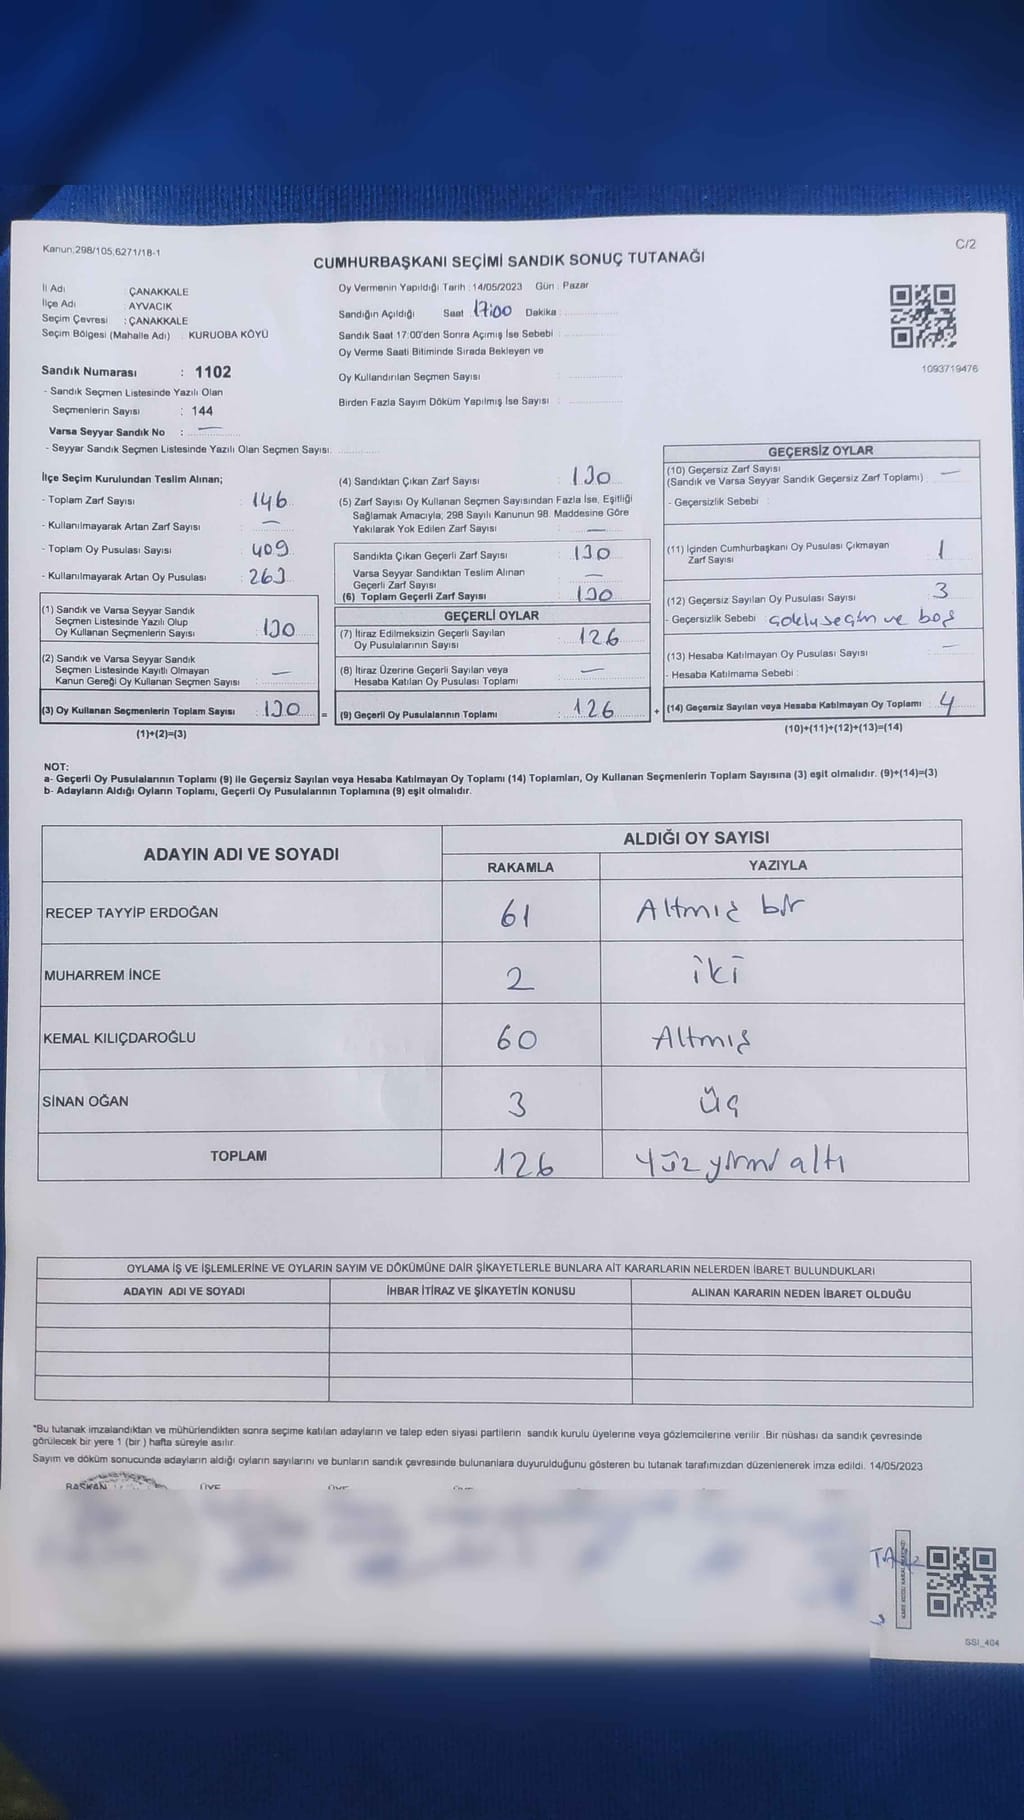 Kanun;298/105,6271/18-1
C/2
CUMHURBAŞKANI SEÇİMİ SANDIK SONUÇ TUTANAĞI
İl Adı : ÇANAKKALE
İlçe Adı : AYVACIK
Seçim Çevresi : ÇANAKKALE
Seçim Bölgesi (Mahalle Adı) : KURUOBA KÖYÜ
Sandık Numarası : 1102
- Sandık Seçmen Listesinde Yazılı Olan
Seçmenlerin Sayısı : 144
Varsa Seyyar Sandık No : —
- Seyyar Sandık Seçmen Listesinde Yazılı Olan Seçmen Sayısı:
Oy Vermenin Yapıldığı Tarih : 14/05/2023 Gün : Pazar
Sandığın Açıldığı Saat : 17:00 Dakika :
Sandık Saat 17:00'den Sonra Açımış İse Sebebi :
Oy Verme Saati Bitiminde Sırada Bekleyen ve
Oy Kullandırılan Seçmen Sayısı :
Birden Fazla Sayım Döküm Yapılmış İse Sayısı :
1093719476
İlçe Seçim Kurulundan Teslim Alınan;
- Toplam Zarf Sayısı : 146
- Kullanılmayarak Artan Zarf Sayısı : —
- Toplam Oy Pusulası Sayısı : 409
- Kullanılmayarak Artan Oy Pusulası : 263
(1) Sandık ve Varsa Seyyar Sandık
Seçmen Listesinde Yazılı Olup
Oy Kullanan Seçmenlerin Sayısı : 130
(2) Sandık ve Varsa Seyyar Sandık
Seçmen Listesinde Kayıtlı Olmayan
Kanun Gereği Oy Kullanan Seçmen Sayısı : —
(3) Oy Kullanan Seçmenlerin Toplam Sayısı : 130 =
(1)+(2)=(3)
(4) Sandıktan Çıkan Zarf Sayısı : 130
(5) Zarf Sayısı Oy Kullanan Seçmen Sayısından Fazla İse, Eşitliği
Sağlamak Amacıyla; 298 Sayılı Kanunun 98. Maddesine Göre
Yakılarak Yok Edilen Zarf Sayısı : —
Sandıkta Çıkan Geçerli Zarf Sayısı : 130
Varsa Seyyar Sandıktan Teslim Alınan
Geçerli Zarf Sayısı : —
(6) Toplam Geçerli Zarf Sayısı : 130
GEÇERLİ OYLAR
(7) İtiraz Edilmeksizin Geçerli Sayılan
Oy Pusulalarının Sayısı : 126
(8) İtiraz Üzerine Geçerli Sayılan veya
Hesaba Katılan Oy Pusulası Toplamı : —
(9) Geçerli Oy Pusulalarının Toplamı : 126 +
GEÇERSİZ OYLAR
(10) Geçersiz Zarf Sayısı
(Sandık ve Varsa Seyyar Sandık Geçersiz Zarf Toplamı) : —
- Geçersizlik Sebebi :
(11) İçinden Cumhurbaşkanı Oy Pusulası Çıkmayan
Zarf Sayısı : 1
(12) Geçersiz Sayılan Oy Pusulası Sayısı : 3
- Geçersizlik Sebebi : çoklu seçim ve boş
(13) Hesaba Katılmayan Oy Pusulası Sayısı : —
- Hesaba Katılmama Sebebi :
(14) Geçersiz Sayılan veya Hesaba Katılmayan Oy Toplamı : 4
(10)+(11)+(12)+(13)=(14)
NOT:
a- Geçerli Oy Pusulalarının Toplamı (9) ile Geçersiz Sayılan veya Hesaba Katılmayan Oy Toplamı (14) Toplamları, Oy Kullanan Seçmenlerin Toplam Sayısına (3) eşit olmalıdır. (9)+(14)=(3)
b- Adayların Aldığı Oyların Toplamı, Geçerli Oy Pusulalarının Toplamına (9) eşit olmalıdır.
ADAYIN ADI VE SOYADI
ALDIĞI OY SAYISI
RAKAMLA YAZIYLA
RECEP TAYYİP ERDOĞAN 61 Altmış bir
MUHARREM İNCE 2 iki
KEMAL KILIÇDAROĞLU 60 Altmış
SİNAN OĞAN 3 üç
TOPLAM 126 yüz yirmi altı
OYLAMA İŞ VE İŞLEMLERİNE VE OYLARIN SAYIM VE DÖKÜMÜNE DAİR ŞİKAYETLERLE BUNLARA AİT KARARLARIN NELERDEN İBARET BULUNDUKLARI
ADAYIN ADI VE SOYADI İHBAR İTİRAZ VE ŞİKAYETİN KONUSU ALINAN KARARIN NEDEN İBARET OLDUĞU
*Bu tutanak imzalandıktan ve mühürlendikten sonra seçime katılan adayların ve talep eden siyasi partilerin sandık kurulu üyelerine veya gözlemcilerine verilir .Bir nüshası da sandık çevresinde
görülecek bir yere 1 (bir ) hafta süreyle asılır.
Sayım ve döküm sonucunda adayların aldığı oyların sayılarını ve bunların sandık çevresinde bulunanlara duyurulduğunu gösteren bu tutanak tarafımızdan düzenlenerek imza edildi. 14/05/2023
BAŞKAN ÜYE
SSI_404